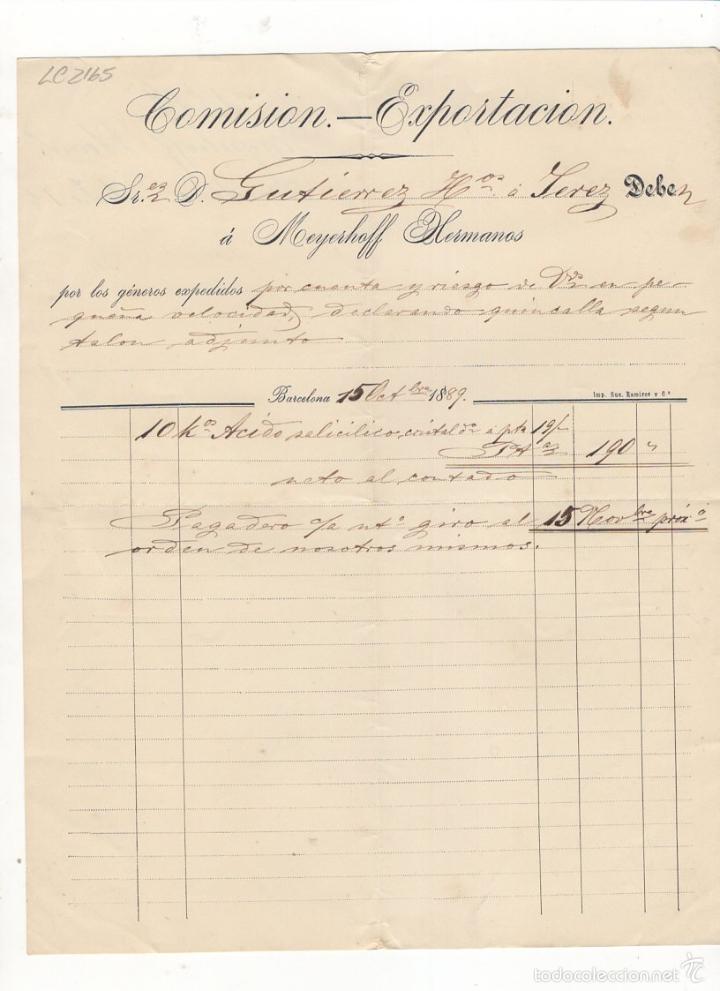 LC2165
Comision.—Exportacion.
Sr.es D. Gutierrez Hos. á Jerez Deben
á Meyerhoff Hermanos
por los géneros expedidos por cuenta y riesgo de Vds en pe-
queña velocidad, declarando quincalla segun
talon adjunto
Barcelona 15 Octbre 1889.
Imp. Suc. Ramirez y C.ª
10 kos Acido salicilico, cristaldo a pta 19/-
PtAs 190 "
neto al contado
Pagadero c/a nto giro al 15 Novbre próxo
orden de nosotros mismos.
todocoleccion.net